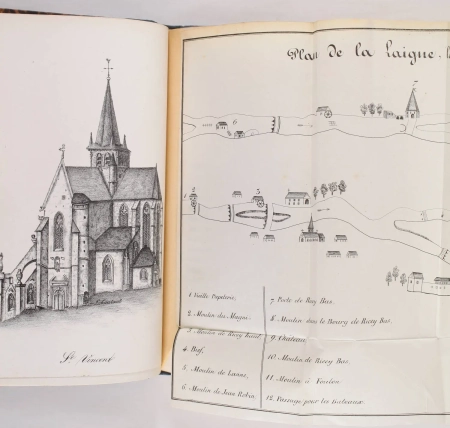 St Vincent
Plan de la Laigne, l
6
3
1 Vieille Papeterie,
2. Moulin du Magny.
3. Moulin de Ricey Haut
4. Bief,
5. Moulin de
6. Moulin de Jean Robin,
7 Poste de Ricey Bas.
8. Moulin dans le Bourg de Ricey Bas,
9. Chateau
10. Moulin de Ricey Bas.
11. Moulin à Foulon
12. Passage pour les Bateaux.